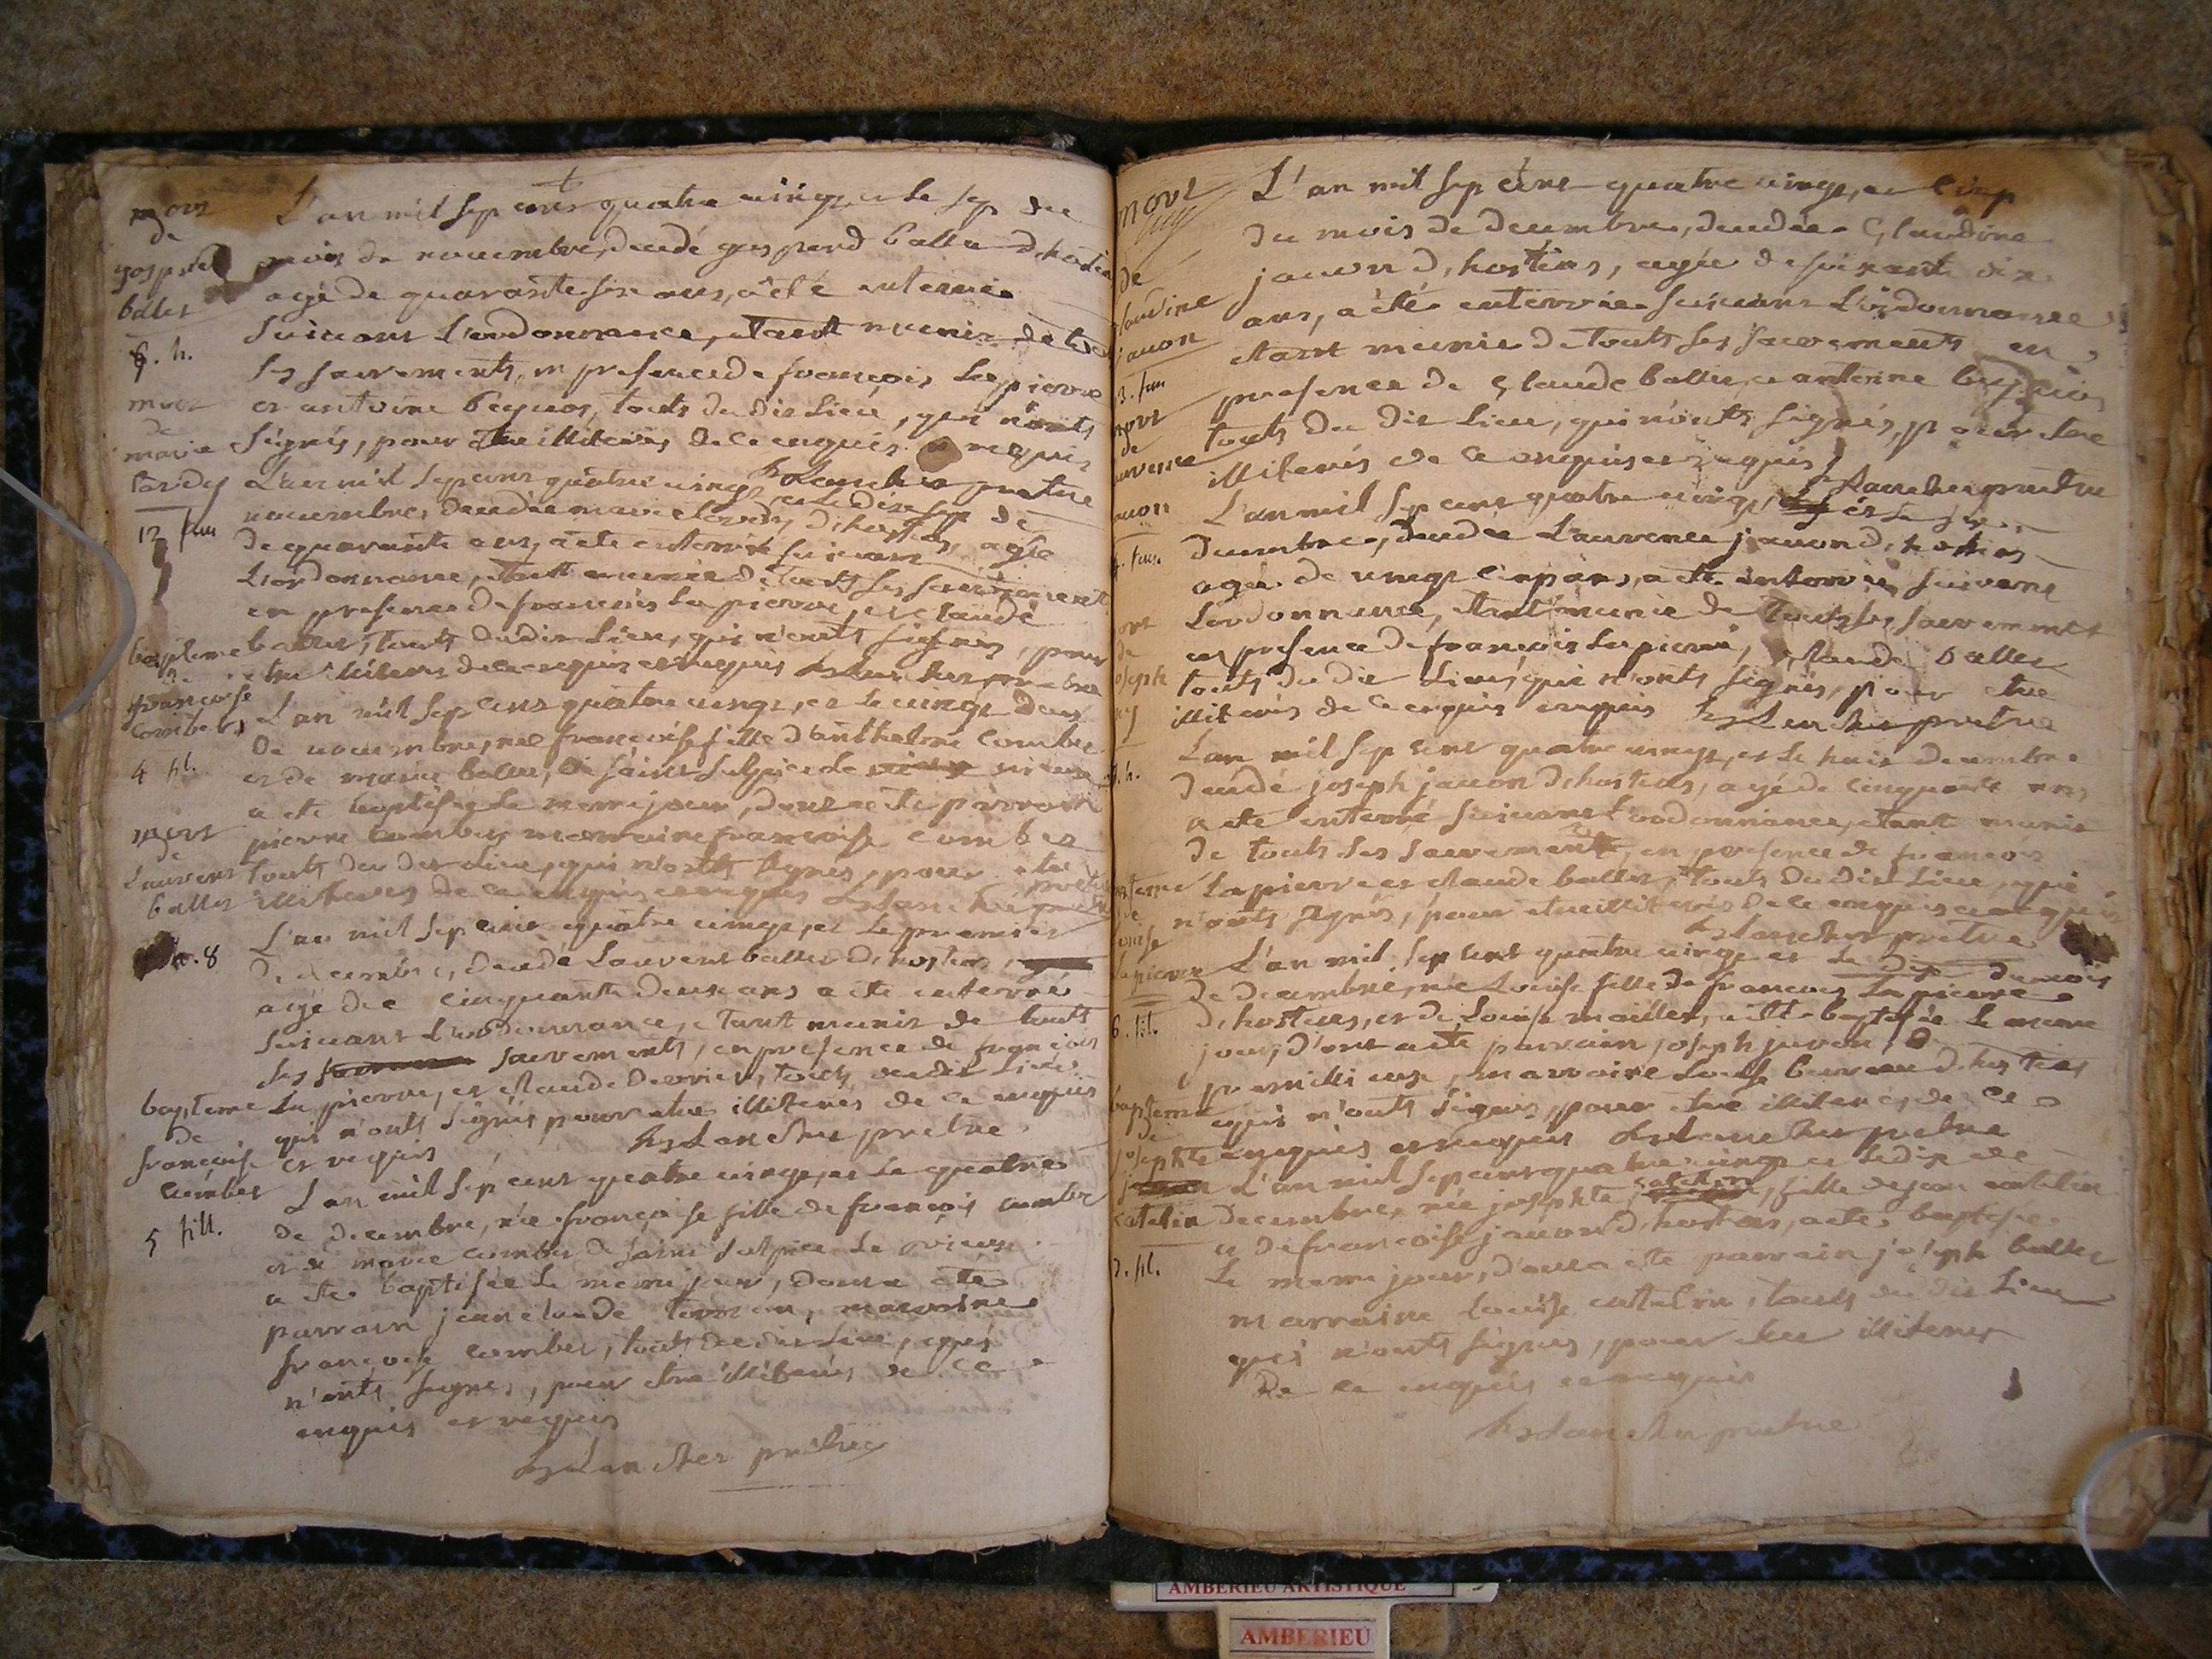 mort
de
gasperd
ballet
8. h.
L'an mil sept cents quatre vingt, et le sept du
mois de novembre, decedé gasperd ballet d'hostias
agé de quarante six ans, a été enterré
suivant l'ordonnance, etant munis de touts
ses sacrements, en presence de françois lapierre
et antoine peguet, touts du dit lieu, qui n'onts
signés, pour etre illiterés de ce enquis et requis
Lancher pretre
mort
de
marie
tardy
12 fem
L'an mil sept cent quatre vingt, et le dix sept de
novembre, decedée marie tardy d'hostias, agée
de quarante ans, a été enterrée suivant
l'ordonnance, etant munie de touts ses sacrements
en presence de françois lapierre, et claude
ballet, touts du dit lieu, qui n'onts signés, pour
etre illiterés de ce enquis et requis Lancher pretre
bapteme
de
françoise
combet
4 fil.
L'an mil sept cens quatre vingt, et le vingt deux
de novembre, née françoise fille d'anthelme combet
et de marie ballet, de saint sulpice le vieux
a été baptisée le meme jour, dont a été parrain
pierre combet, marraine françoise combet
touts du dit lieu, qui n'onts signés, pour etre
illiterés de ce enquis et requis Lancher pretre
mort
de
Laurent
ballet
h. 8
L'an mil sept cent quatre vingt, et le premier
de decembre, decedé Laurent ballet d'hostias,
agé de cinquante deux ans a été enterré
suivant l'ordonnance, etant munis de touts
ses sacrements, en presence de françois
lapierre, et claude, touts du dit lieu
qui n'onts signés pour etre illiterés de ce enquis
et requis Lancher pretre
bapteme
de
françoise
cumbet
5 fill.
L'an mil sept cent quatre vingt, et le quatre
de decembre, née françoise fille de françois cumbet
et de marie cumbet de saint sulpice le vieux
a été baptisée le meme jour, dont a été
parrain jean claude, marraine
françoise combet, touts du dit lieu, qui
n'onts signés, pour etre illiterés de ce
enquis et requis
Lancher pretre
mort
de
claudine
javon
13. fem
L'an mil sept cent quatre vingt, et le cinq
du mois de decembre, decedée Claudine
javon d'hostias, agée de soixante dix
ans, a été enterrée suivant l'ordonnance
etant munie de touts ses sacrements en
presence de claude ballet, et antoine
touts du dit lieu, qui n'onts signés, pour etre
illiterés de ce enquis et requis
Lancher pretre
mort
de
Laurence
javon
fem.
L'an mil sept cent quatre vingt, et le
decembre, decedée Laurence javon d'hostias
agée de vingt cinq ans, a été enterrée suivant
l'ordonnance, etant munie de touts ses sacrements
en presence de françois lapierre, claude ballet
touts du dit lieu, qui n'onts signés, pour etre
illiterés de ce enquis et requis Lancher pretre
mort
de
joseph
h.
L'an mil sept cent quatre vingt, et le huit decembre
decedé joseph javon d'hostias, agé de cinquante ans
a été enterré suivant l'ordonnance, etant munis
de touts ses sacrements, en presence de françois
lapierre et claude ballet, touts du dit lieu, qui
n'onts signés, pour etre illiterés de ce enquis et requis
Lancher pretre
bapteme
de
louise
lapierre
6. fil.
L'an mil sept cent quatre vingt et le dix du mois
de decembre, née Louise fille de françois lapierre
d'hostias, et de Louise maillet, a été baptisée le meme
jour, d'ont a été parrain joseph juvon, de
premillieux, marraine Louise d'hostias
qui n'onts signés, pour etre illiterés de ce
enquis et requis Lancher pretre
bapteme
de
josephte
catelin
7. fil.
L'an mil sept cent quatre vingt et le dix de
decembre, née josephte catelin, fille de jean catelin
et de françoise javon d'hostias, a été baptisée
le meme jour, d'ont a été parrain joseph ballet
marraine Louise catelin, touts du dit lieu
qui n'onts signés, pour etre illiterés
de ce enquis et requis
Lancher pretre
AMBERIEU ARTISTIQUE
AMBERIEU